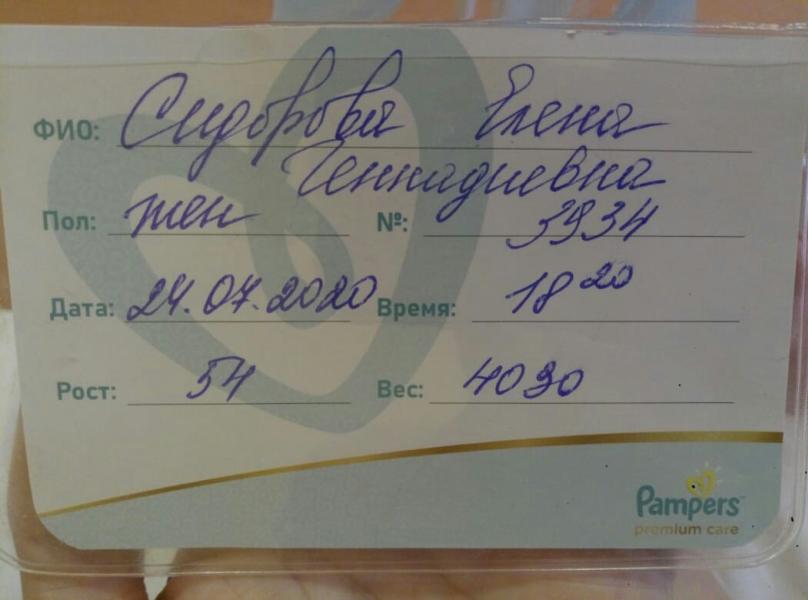 ФИО: Сидорова Елена
Геннадиевна
Пол: жен №: 3934
Дата: 24.07.2020 Время: 18 20
Рост: 54 Вес: 4030
Pampers
premium care